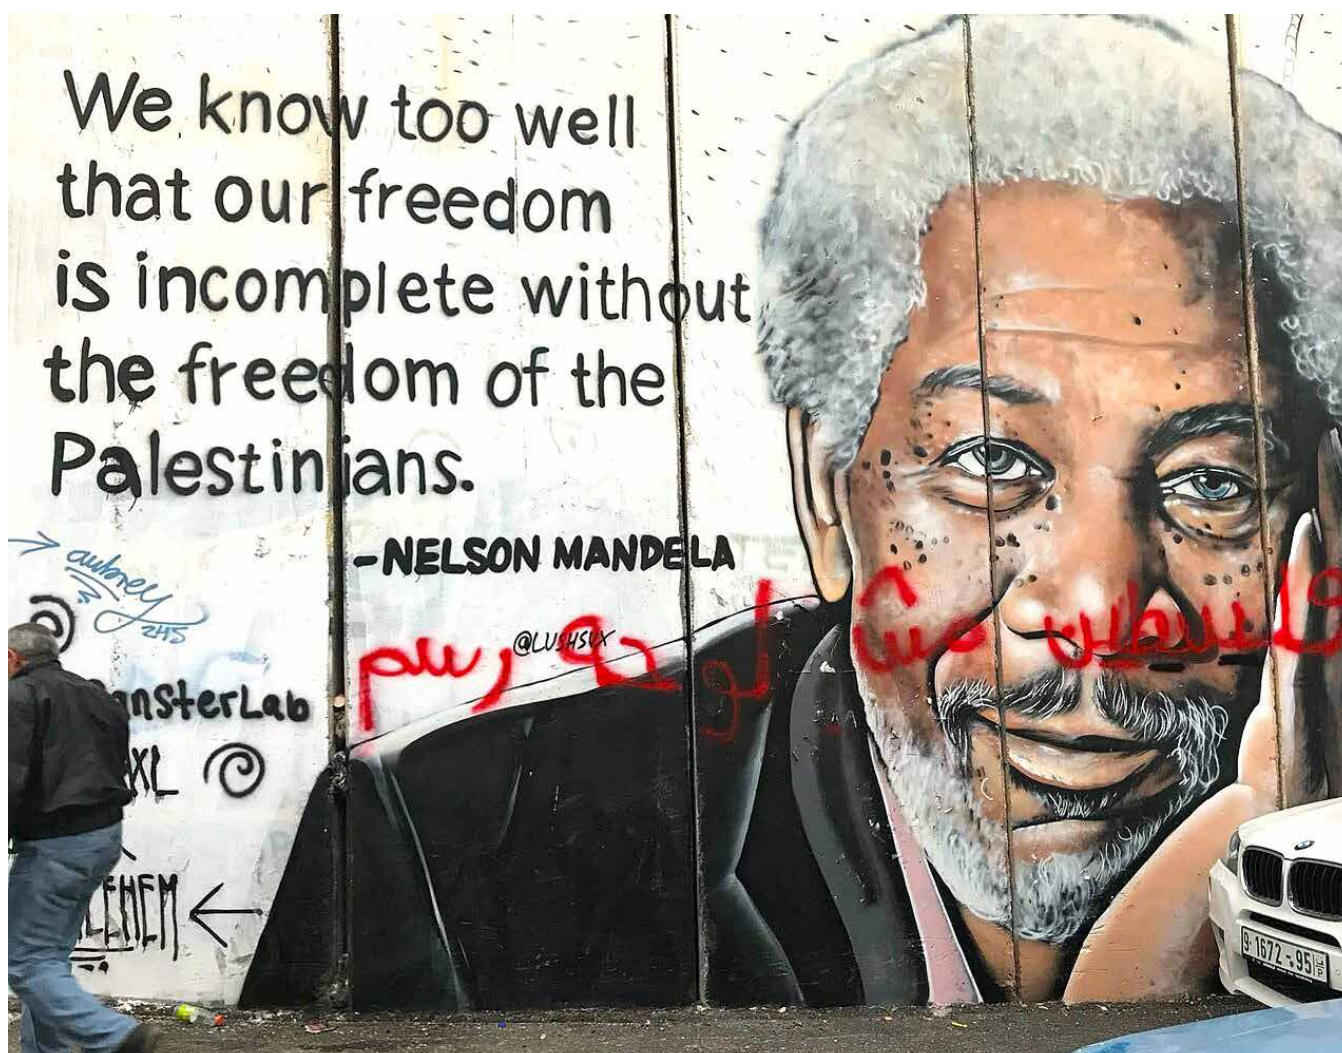 We know too well
that our freedom
is incomplete without
the freedom of the
Palestinians.
-NELSON MANDELA
@LUSHSUX
فلسطين مش لوحة رسم
aubrey
2HS
ansterLab
XL
LEHEM
9·1672-95